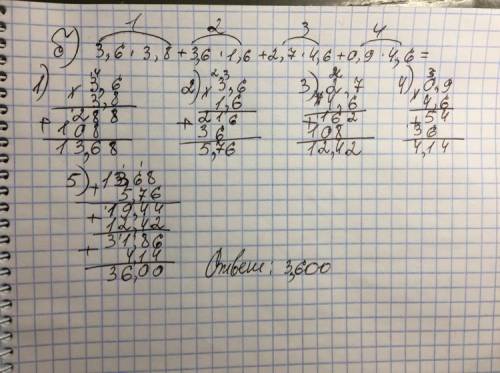 1 2 3 4
б) 3,6 · 3,8 + 3,6 · 1,6 + 2,7 · 4,6 + 0,9 · 4,6 =
1) × 3,6
3,8
+ 288
108
13,68
2) × 3,6
1,6
+ 216
36
5,76
3) × 2,7
4,6
+ 162
108
12,42
4) × 0,9
4,6
+ 54
36
4,14
5) + 13,68
5,76
+ 19,44
12,42
+ 31,86
414
36,00
Ответ: 3,600